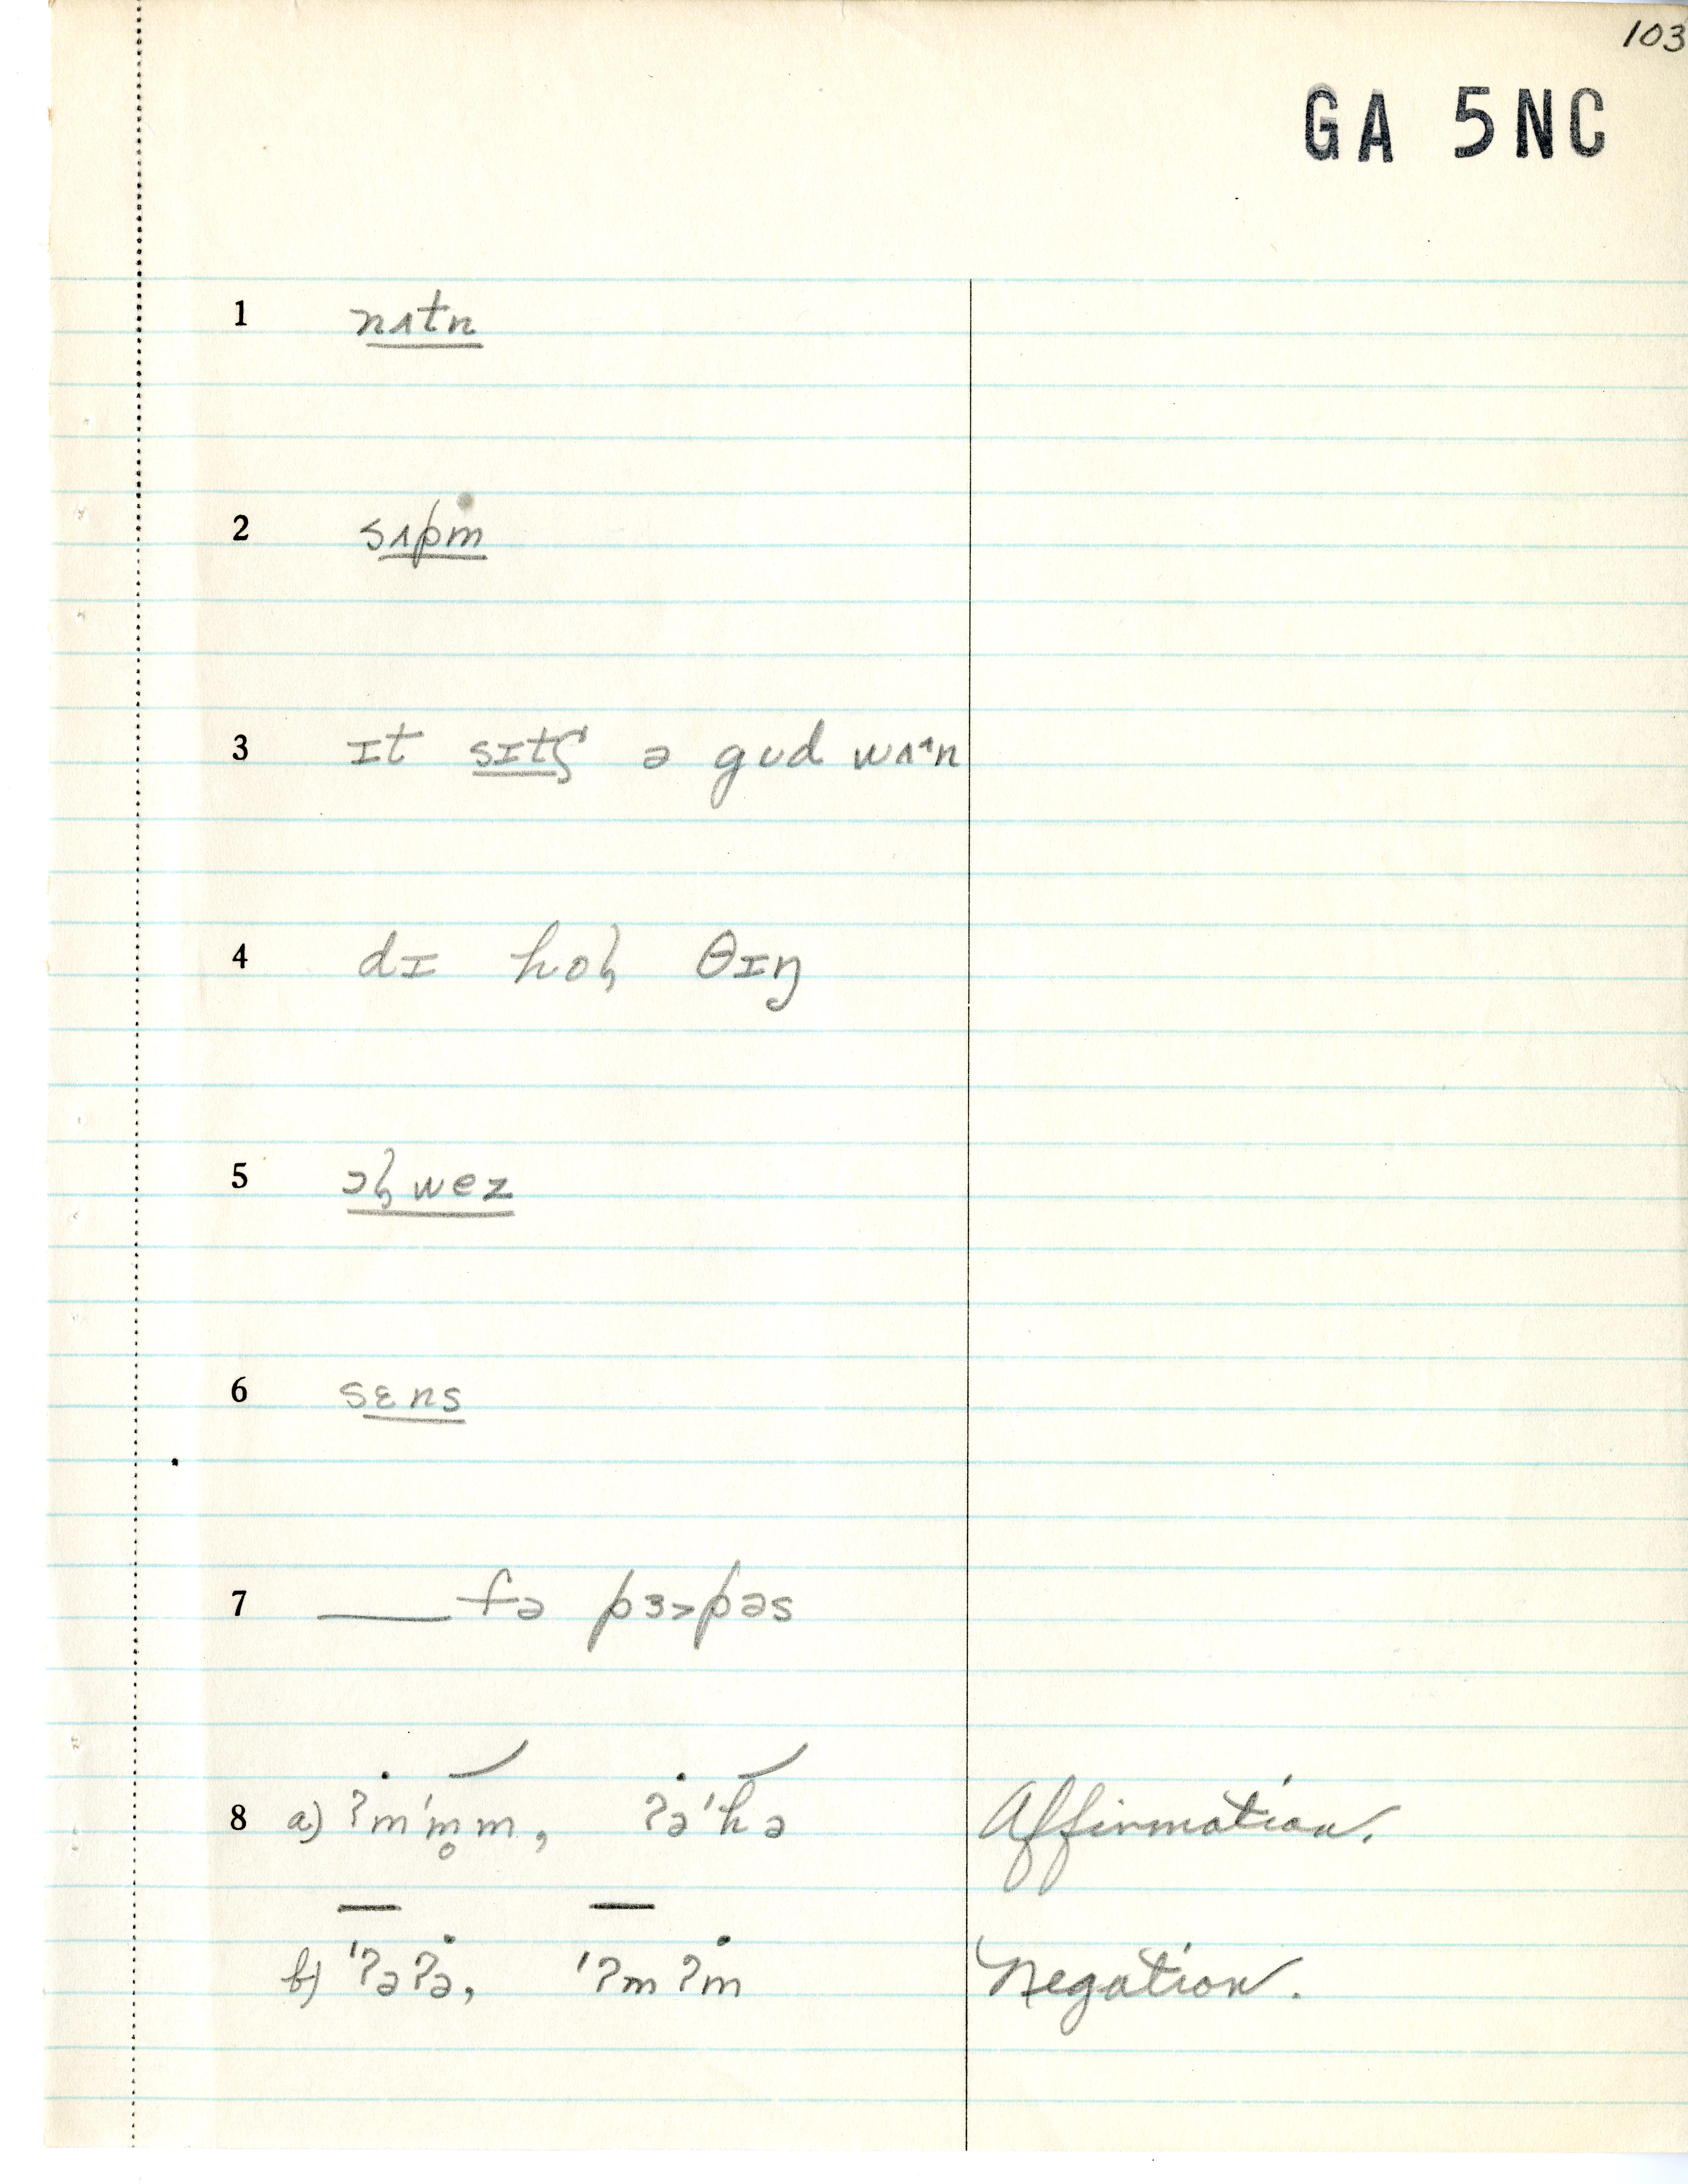 103
GA 5NC
1 nʌtn
2 sʌpm
3 ɪt sɪtʃ ə gʊd wʌˑn
4 dɪ hol̡ θɪŋ
5 ɔl̡wez
6 sɛns
7 ___ fə pɜ˃pəs
8 a) ʔm'm̥m, ʔə'hə Affirmation.
b) 'ʔəʔə, 'ʔmʔm Negation.